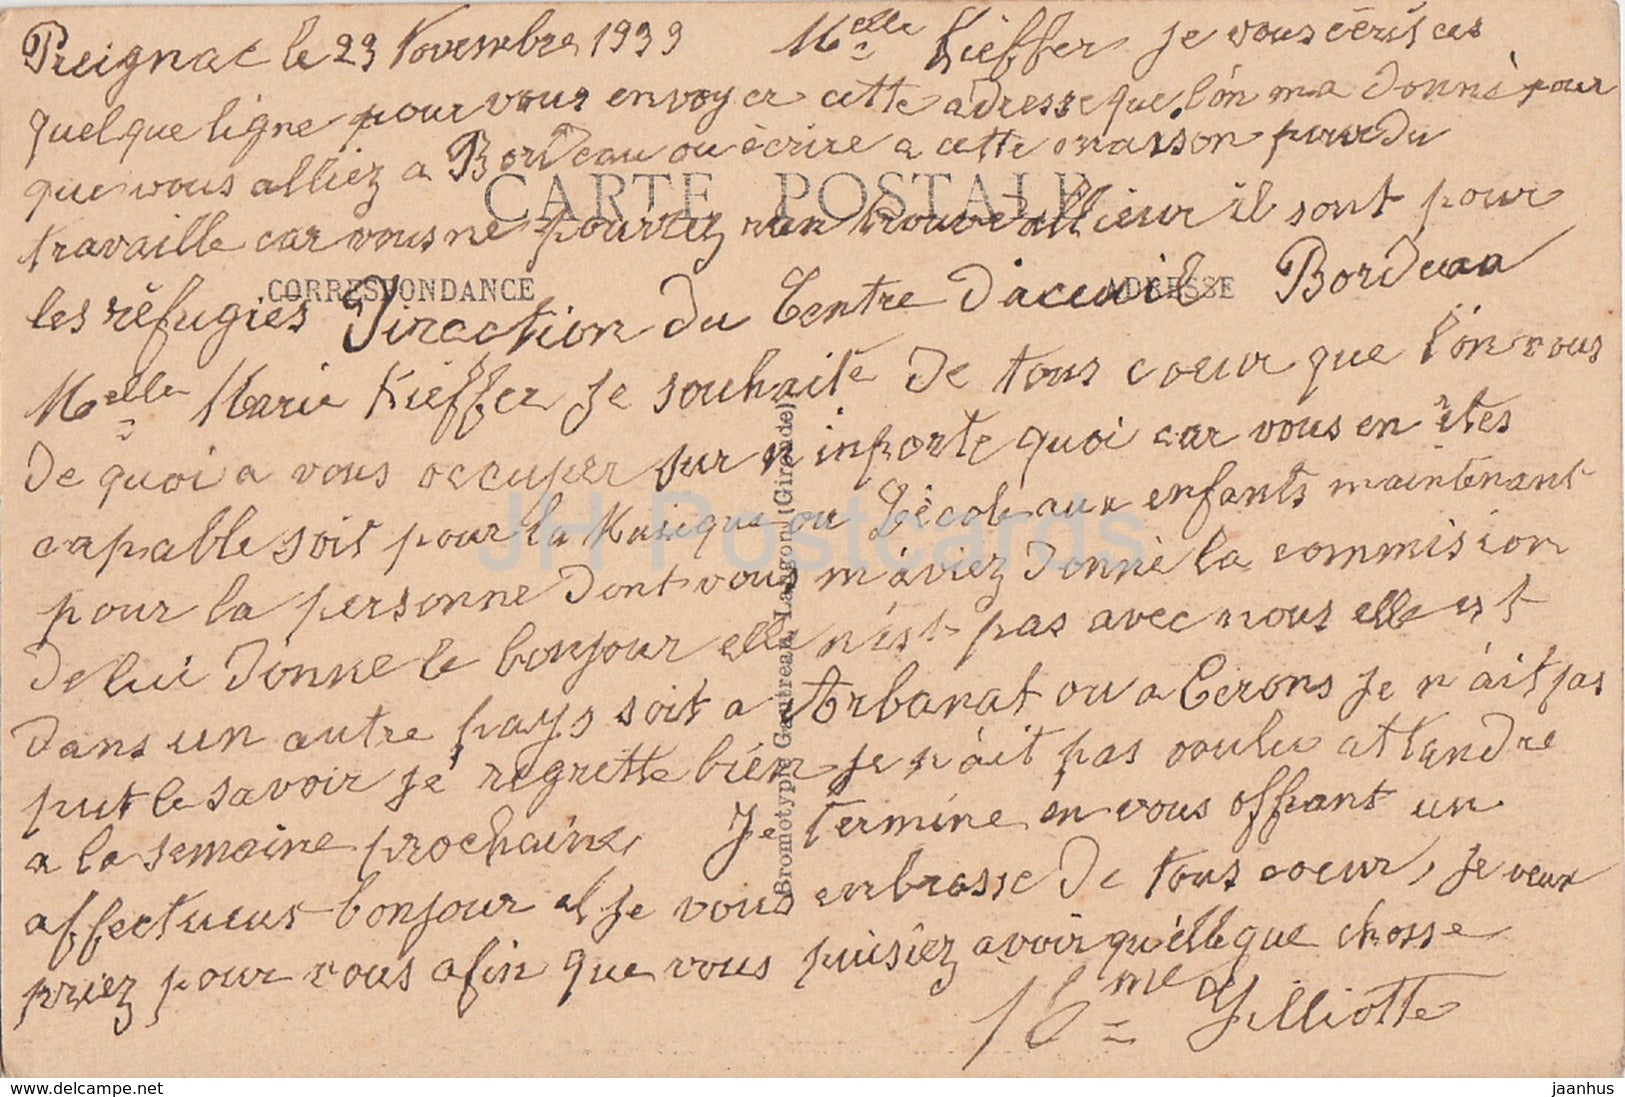 Preignac le 23 Novembre 1939 Melle Kieffer je vous écris ces
quelque ligne pour vous envoyer cette adresse que l'on ma donné pour
que vous alliez a Bordeau ou écrire a cette maison pour du
CARTE POSTALE
travaille car vous ne pourrez rien trouve allieur il sont pour
CORRESPONDANCE
ADRESSE
les réfugiés Direction du Centre D'aceuil Bordeau
Melle Marie Kieffer je souhaite de tous coeur que l'on vous
de quoi a vous occuper sur n'inporte quoi car vous en êtes
capable soit pour la Musique ou L'école aux enfants maintenant
pour la personne dont vous m'aviez donnè la commision
de lui donne le bonjour elle n'est pas avec nous elle est
dans un autre pays soit a Arbanat ou a Cerons je n'ait pas
put le savoir je regrette bien je n'ait pas voulu attandre
a la semaine prochaine, Je termine en vous offrant un
affectueux bonjour et je vous embrasse de tous coeur, je veux
priez pour vous afin que vous puisiez avoir qu'elle que chosse
Mme Gilliotte
Bromotypie Gautreau, Langon (Gironde)
JH Postcards
www.delcampe.net
jaanhus